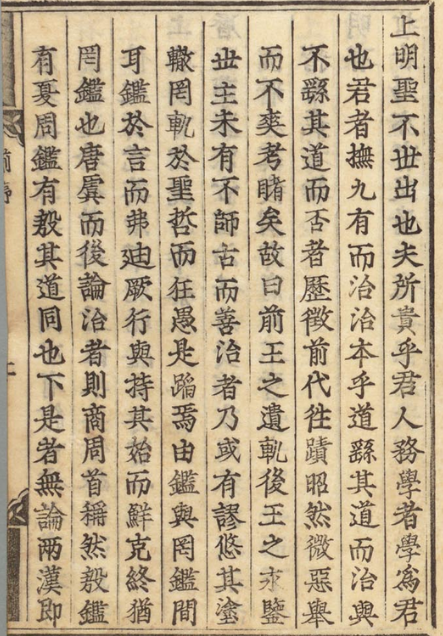 上明聖不世出也夫所貴乎君人務學者學爲君
也君者撫九有而治治本乎道繇其道而治興
不繇其道而否者歷徵前代徃蹟昭然微惡舉
而不爽考睹矣故曰前王之遺軌後王之永鑒
世主未有不師古而善治者乃或有謬悠其塗
轍罔軌於聖哲而狂愚是蹈焉由鑑與罔鑑間
耳鑑於言而弗迪厥行與持其始而鮮克終猶
罔鑑也唐虞而後論治者則商周首稱然殷鑑
有夏周鑑有殷其道同也下是者無論兩漢即